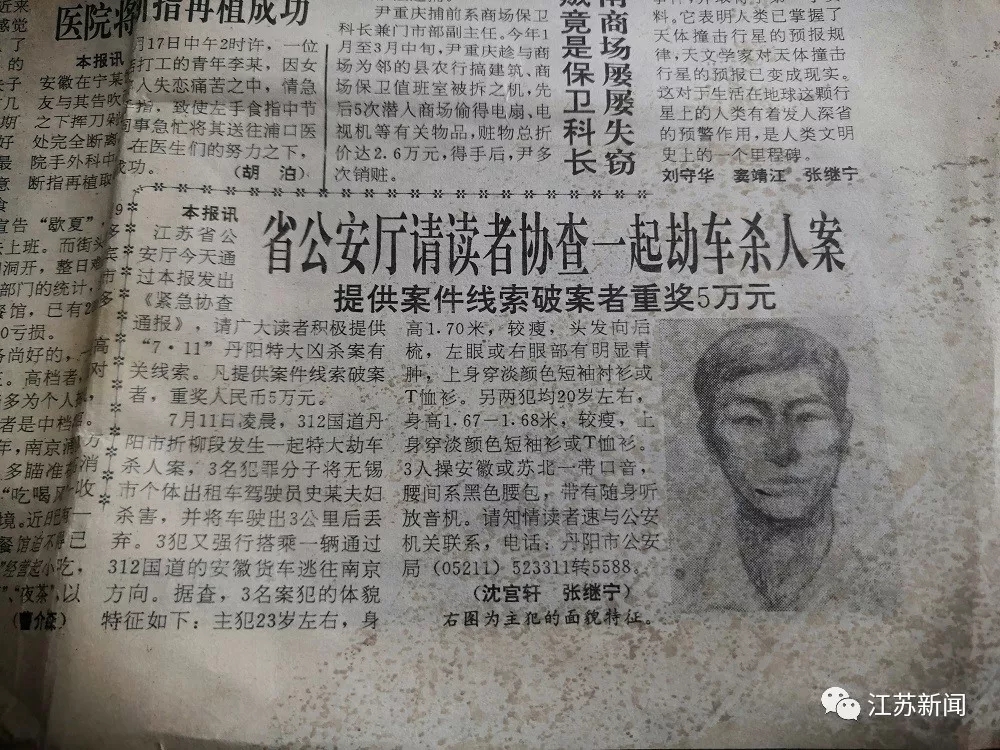 医院将断指再植成功
本报讯
月17日中午2时许，一位
打工的青年李某，因女
安徽在宁某
友与其告吹
入失恋痛苦之中，情急
之下挥刀剁
指，致使左手食指中节
处完全断离
同事急忙将其送往浦口医
院手外科中
在医生们的努力之下，
断指再植取
成功。
（胡 泊）
尹重庆捕前系商场保卫
科长兼门市部副主任。今年1
月至3月中旬，尹重庆趁与商
场为邻的县农行搞建筑、商
场保卫值班室被拆之机，先
后5次潜人商场偷得电扇、电
视机等有关物品，赃物总折
价达2.6万元，得手后，尹多
次销赃。
商场屡屡失窃
贼竟是保卫科长
料。它表明人类已掌握了
天体撞击行星的预报规
律，天文学家对天体撞击
行星的预报已变成现实。
这对于生活在地球这颗行
星上的人类有着发人深省
的预警作用，是人类文明
史上的一个里程碑。
刘守华 窦靖江 张继宁
宣告“歇夏”，
上班。而街头
洞开，整日难
部门的统计，
餐馆，已有2
0亏损。
尚好的，一
高档者，
多为个人
者是中档
年，南京浦
多瞄准
“吃喝
境。近
（曹介淼）
本报讯
江苏省公
安厅今天通
过本报发出
《紧急协查
通报》，请广大读者积极提供
“7·11”丹阳特大凶杀案有
关线索。凡提供案件线索破案
者，重奖人民币5万元。
省公安厅请读者协查一起劫车杀人案
提供案件线索破案者重奖5万元
7月11日凌晨，312国道丹
阳市折柳段发生一起特大劫车
杀人案，3名犯罪分子将无锡
市个体出租车驾驶员史某夫妇
杀害，并将车驶出3公里后丢
弃。3犯又强行搭乘一辆通过
312国道的安徽货车逃往南京
方向。据查，3名案犯的体貌
特征如下：主犯23岁左右，身
高1.70米，较瘦，头发向后
梳，左眼或右眼部有明显青
肿，上身穿淡颜色短袖衬衫或
T恤衫。另两犯均20岁左右，
身高1.67—1.68米，较瘦，上
身穿淡颜色短袖衫或T恤衫。
3人操安徽或苏北一带口音，
腰间系黑色腰包，带有随身听
放音机。请知情读者速与公安
机关联系，电话：丹阳市公安
局（05211）523311转5588。
（沈宫轩 张继宁）
右图为主犯的面貌特征。
江苏新闻